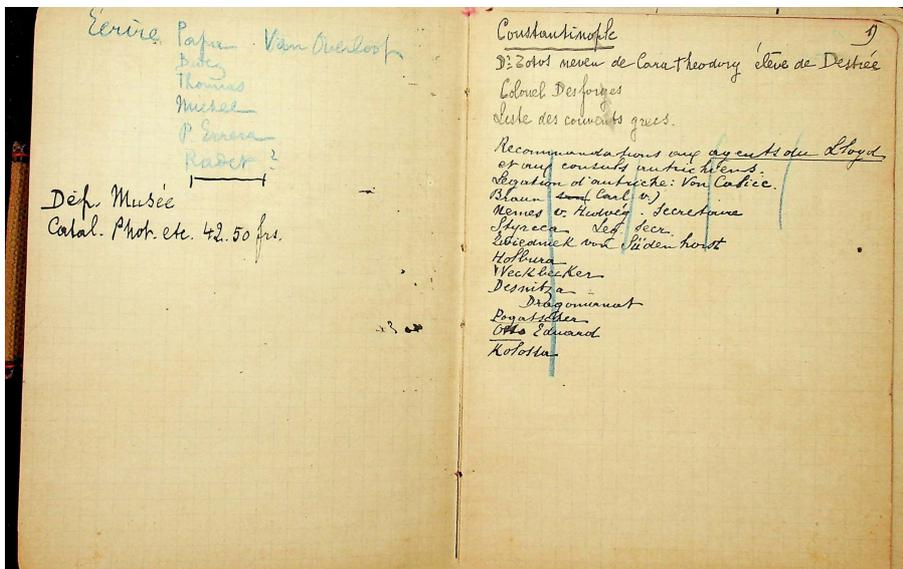 Écrire Papa. Van Overloop
Bidez
Thomas
Michel
P. Errera
Radet ?
Dép. Musée
Catal. Phot. etc. 42.50 frs.
Constantinople
Dr Zotos neveu de Caratheodory élève de Destrée
Colonel Desforges
Liste des couvents grecs.
Recommandations aux agents du Lloyd
et aux consuls autrichiens.
Légation d'autriche: Von Calice.
Braun (Carl v.)
Nemes v. Hidvég. Secretaire
Styrcea Leg. Secr.
Zwiedinek von Südenhorst
Weckbecker
Desnitza
Dragomanat
Pogatscher
Otto Eduard